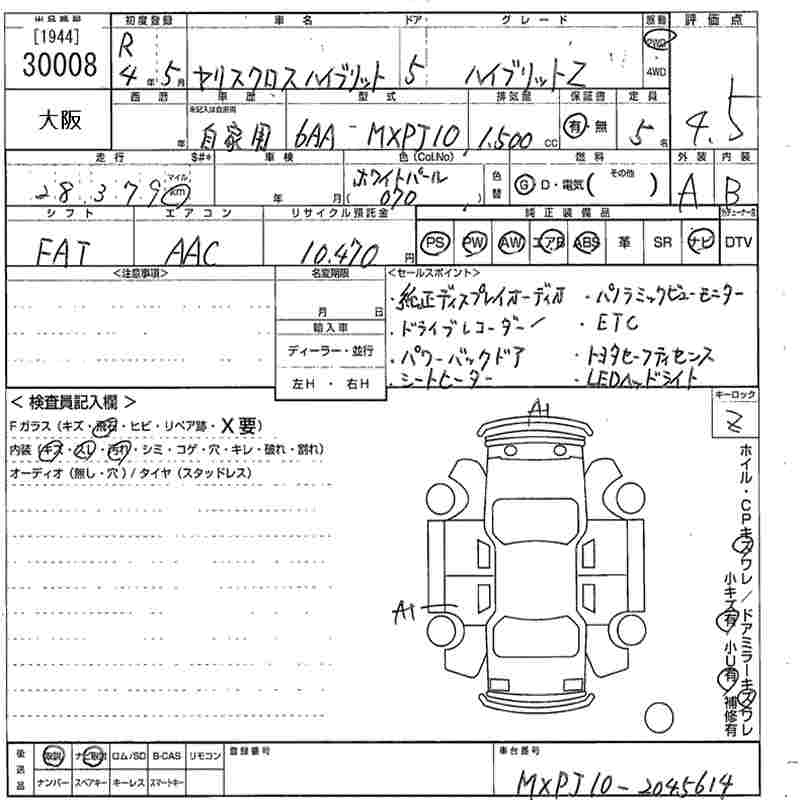 [1944]
30008
大阪
初度登録 車名 ドア グレード 駆動 評価点
R 4年 5月 ヤリスクロス ハイブリット 5 ハイブリットZ 2WD 4WD 4.5
車歴 型式 排気量 保証書 定員
年 未記入は自家用 自家用 6AA-MXPJ10 1.500cc 有・無 5名
走行 S#* 車検 色(Col.No) 燃料 外装 内装
28379 マイル km 年 月 ホワイトパール (070) 色替 G D・電気( その他 ) A B
シフト エアコン リサイクル預託金 純正装備品
FAT AAC 10.470円 PS PW AW エアB ABS 革 SR ナビ DTV
<注意事項> 名変期限 <セールスポイント>
月 日
輸入車
ディーラー・並行
左H・右H
・純正ディスプレイオーディオ ・パノラミックビューモニター
・ドライブレコーダー ・ETC
・パワーバックドア ・トヨタセーフティセンス
・シートヒーター ・LEDヘッドライト
<検査員記入欄> キーロック
Z
Fガラス(キズ・飛石・ヒビ・リペア跡・X要)
内装(キズ・スレ・汚れ・シミ・コゲ・穴・キレ・破れ・割れ)
オーディオ(無し・穴)/タイヤ(スタッドレス)
A1
A1
ホイル・CPキズワレ/ドアミラーキズワレ
小キズ有 小U有 補修有
後送品 取説 ナビ取説 ロム/SD B-CAS リモコン 登録番号 車台番号
ナンバー スペアキー キーレス スマートキー
MXPJ10-2045614